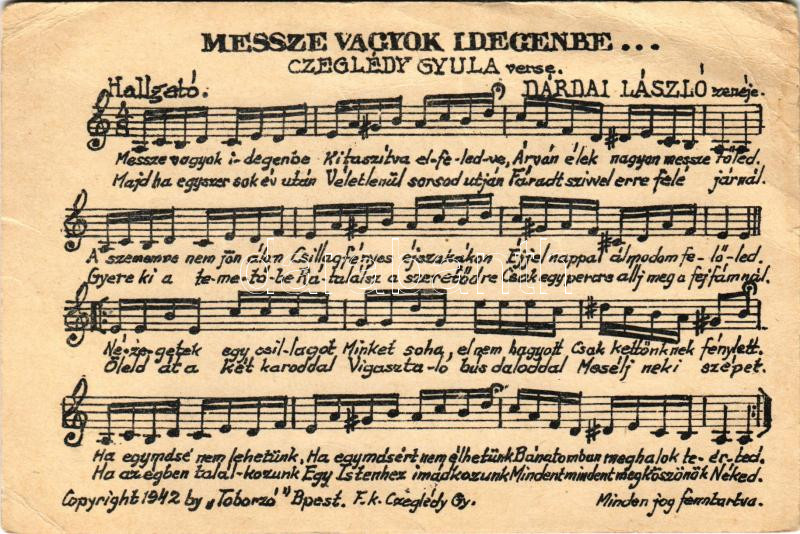 MESSZE VAGYOK IDEGENBE...
CZEGLÉDY GYULA verse.
Hallgató. DÁRDAI LÁSZLÓ zenéje.
Messze vagyok i-degenbe Kitaszítva el-fe-led-ve, Árván élek nagyon messze tőled.
Majd ha egyszer sok év után Véletlenül sorsod utján Fáradt szivvel erre felé járnál.
A szememre nem jön álom Csillagfényes éjszakákon Éjjel nappal álmodom fe-lő-led.
Gyere ki a te-me-tő-be Rá-találsz a szeretődre Csak egy percre állj meg a fejfámnál.
Né-ze-getek egy csil-lagot Minket soha, el nem hagyott Csak kettőnknek fénylett.
Öleld át a két karoddal Vigaszta-ló bús daloddal Mesélj neki szépet.
Ha egymásé nem lehetünk, Ha egymásért nem élhetünk Bánatomban meghalok te-ér-ted.
Ha az égben talál-kozunk Egy Istenhez imádkozunk Mindent mindent megköszönök Néked.
Copyright 1942 by „Toborzó" Bpest. F.k. Czeglédy Gy. Minden jog fenntartva.